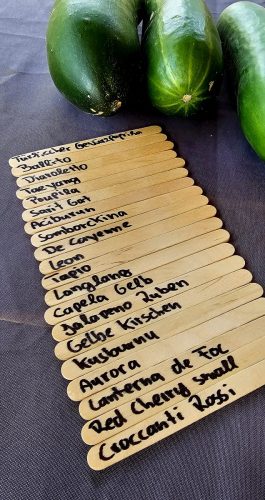 Türkischer
Ballito
Diavoletto
Taeyang
Poupila
Sarit Gat
Aciburun
Somborckina
De Cayenne
Leon
Tapio
Langlang
Capela Gelb
Jalapeno Zuben
Gelbe Kirschen
Kusburnu
Aurora
Lanterna de Foc
Red Cherry small
Croccanti Rossi